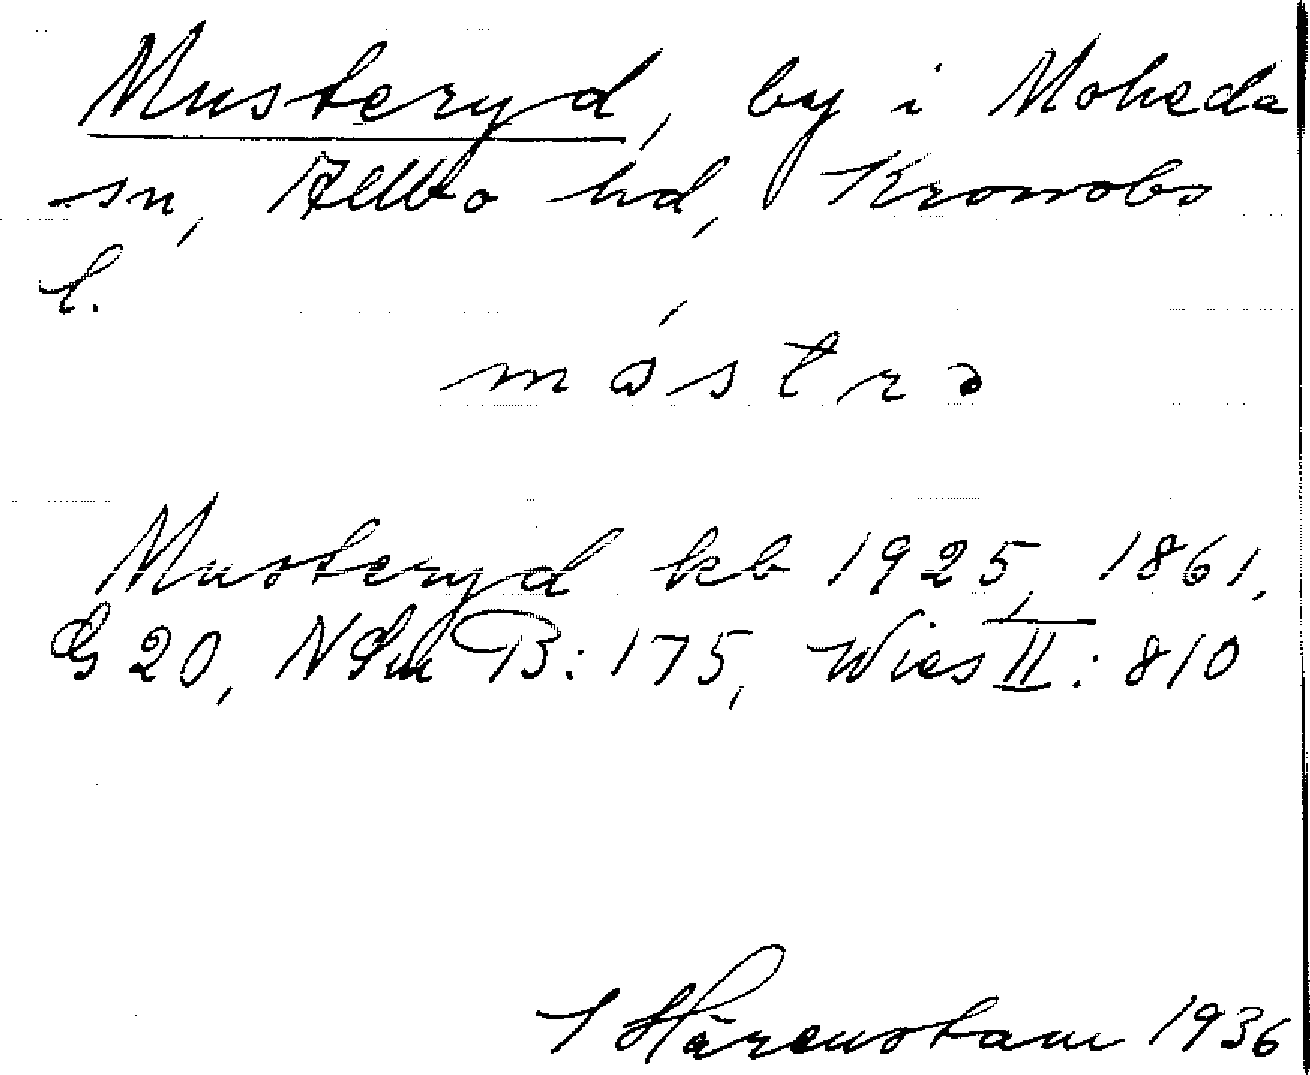 Musteryd, by i Moheda
sn, Allbo hd, Kronobs
l.
móstrə
Musteryd kb 1925, 1861,
G 20, NSm B: 175, Wies II: 810
Härenstam 1936